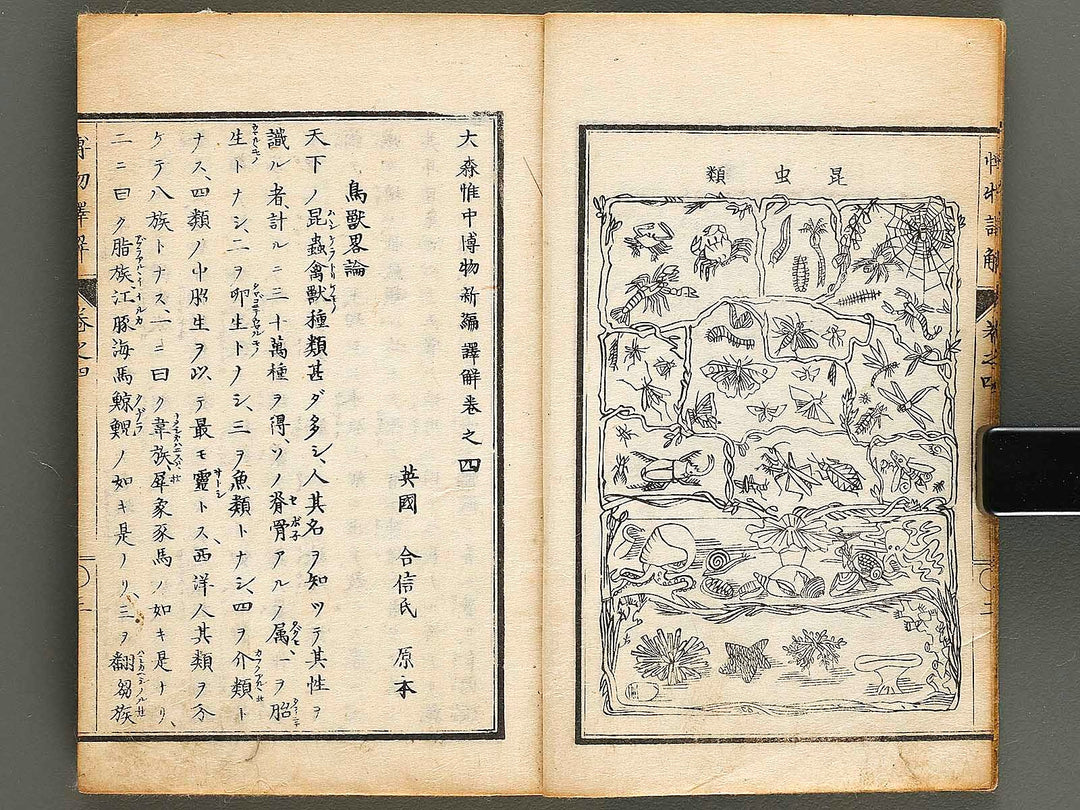 昆虫類
博物譯解 卷之四
大森惟中博物新編譯解卷之四
英國 合信氏 原本
鳥獸畧論
天下ノ昆蟲禽獸種類甚ダ多シ、人其名ヲ知ツテ其性ヲ
識ル者、計ルニ三十萬種ヲ得、ソノ脊骨アルノ属、一ヲ胎
生トナシ、二ヲ卵生トナシ、三ヲ魚類トナシ、四ヲ介類ト
ナス、四類ノ中胎生ヲ以テ最モ靈トス、西洋人其類ヲ分
ケテ八族トナス、一ニ曰ク韋族、犀象豕馬ノ如キ是ナリ、
二ニ曰ク脂族、江豚海馬鯨鯢ノ如キ是ナリ、三ヲ翻芻族
博物譯解 卷之四